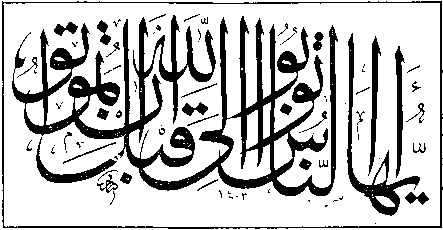 يأيها الناس توبوا إلى الله قبل أن تموتوا
١٤٠٢